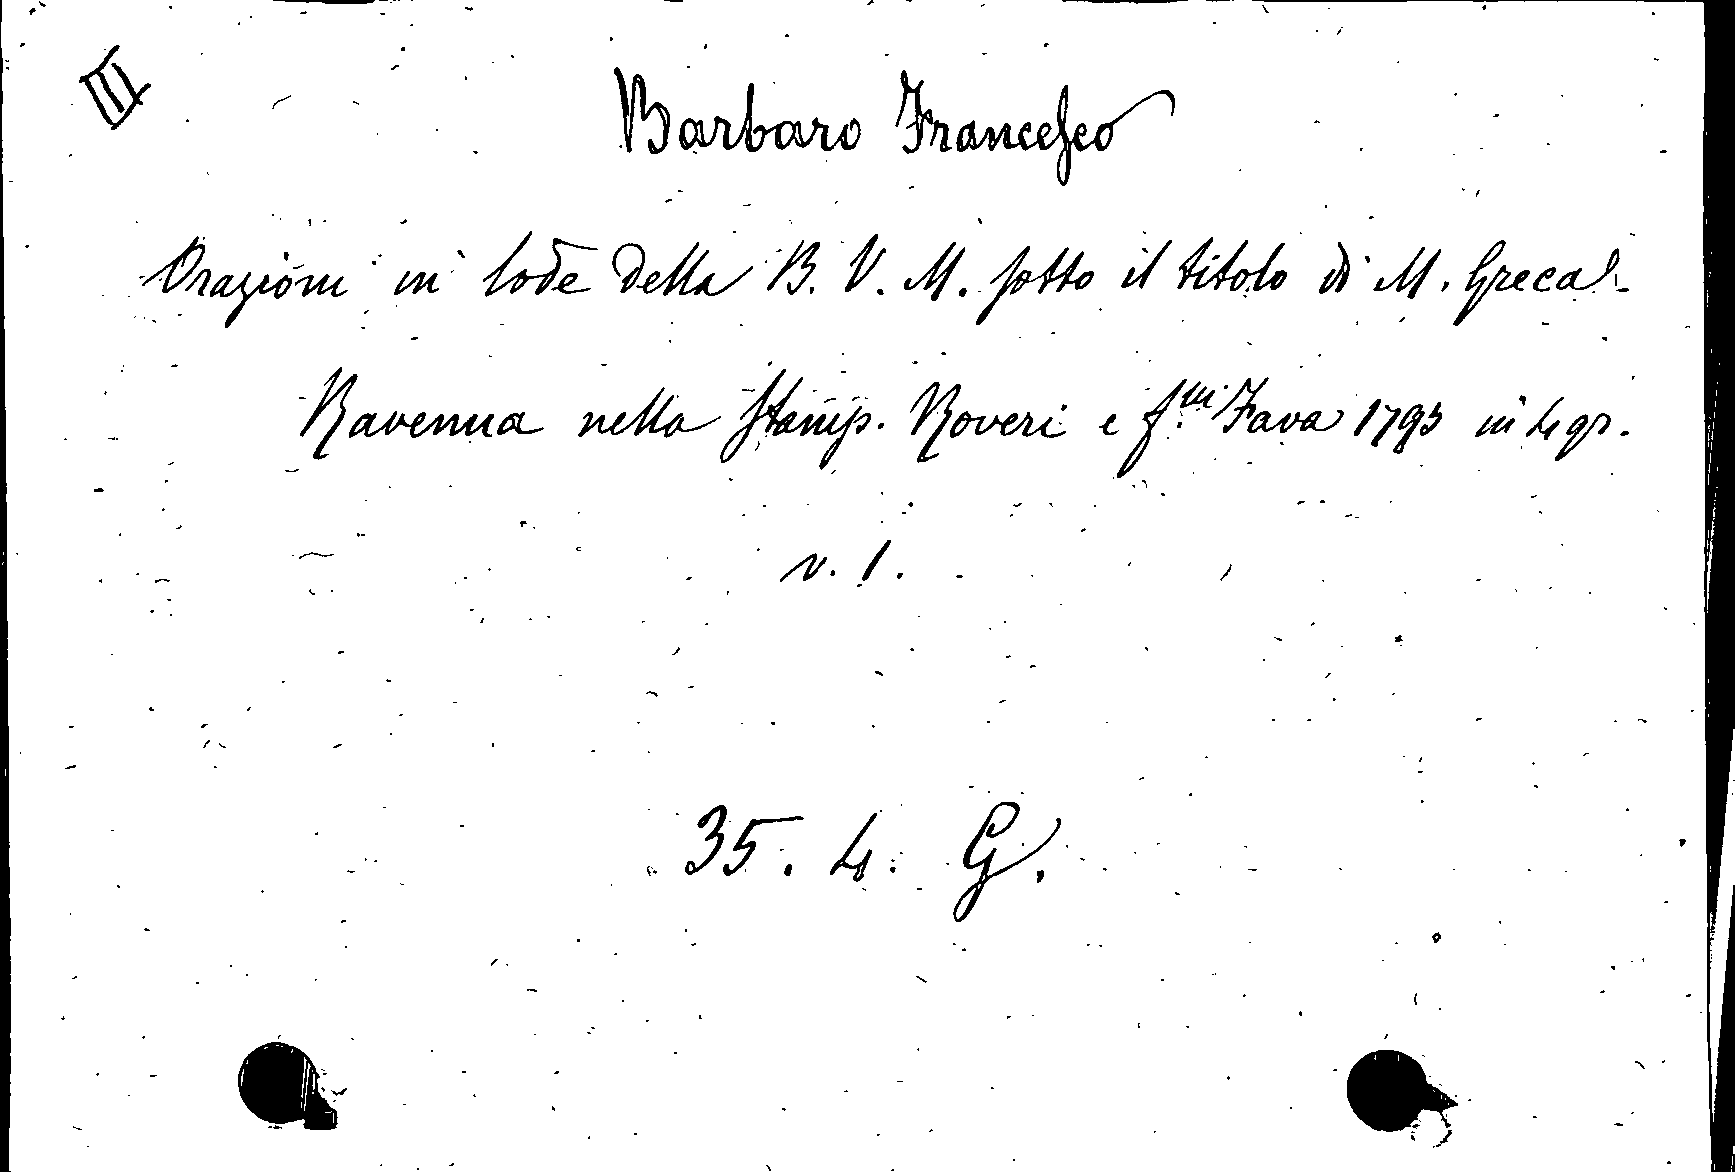 III
Barbaro Francesco
Orazioni in lode della B. V. M. sotto il titolo di M. Greca.
Ravenna nella Stamp. Roveri e f.lli Fava 1793 in 4 gr.
v. 1.
35. 4. G.